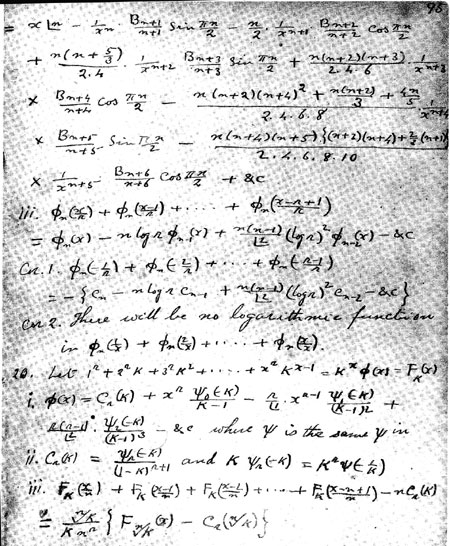 95
= x⌊n − 1/xⁿ · Bₙ₊₁/(n+1) Sin πn/2 − n/2 · 1/xⁿ⁺¹ Bₙ₊₂/(n+2) cos πn/2
+ n(n + 5/3)/2.4 · 1/xⁿ⁺² Bₙ₊₃/(n+3) Sin πn/2 + n(n+2)(n+3)/2.4.6 · 1/xⁿ⁺³
× Bₙ₊₄/(n+4) Cos πn/2 − (n(n+2)(n+4)² + n(n+2)/3 + 4n/5)/2.4.6.8 · 1/xⁿ⁺⁴
× Bₙ₊₅/(n+5) Sin πn/2 − n(n+4)(n+5){(n+2)(n+4)+⅔(n+1)}/2.4.6.8.10
× 1/xⁿ⁺⁵ Bₙ₊₆/(n+6) Cos πn/2 + &c
iii. φₙ(x/n) + φₙ((x−1)/n) + ..... + φₙ((x−n+1)/n)
= φₙ(x) − n log n φₙ₋₁(x) + n(n−1)/⌊2 (log n)² φₙ₋₂(x) − &c
Cor. 1. φₙ(−1/n) + φₙ(−2/n) + ... + φₙ(−(n−1)/n)
= − {Cₙ − n log n Cₙ₋₁ + n(n−1)/⌊2 (log n)² Cₙ₋₂ − &c}
Cor 2. There will be no logarithmic function
in φₙ(1/x) + φₙ(2/x) + ..... + φₙ(x/x).
20. Let 1ⁿ + 2ⁿ K + 3ⁿ K² + ..... + xⁿ Kˣ⁻¹ = Kˣ φ(x) = F_K(x)
i. φ(x) = Cₙ(K) + xⁿ ψ₀(−K)/(K−1) − n/⌊1 · xⁿ⁻¹ ψ₁(−K)/(K−1)² +
n(n−1)/⌊2 · ψ₂(−K)/(K−1)³ − &c where ψ is the same ψ in
ii. Cₙ(K) = ψₙ(−K)/(1−K)ⁿ⁺¹ and K ψₙ(−K) = Kⁿ ψ(−1/K)
iii. F_K(x/n) + F_K((x−1)/n) + F_K((x−2)/n) + ... + F_K((x−n+1)/n) − nCₙ(K)
= ⁿ√K/(K nⁿ) {F_ⁿ√K(x) − Cₙ(ⁿ√K)}